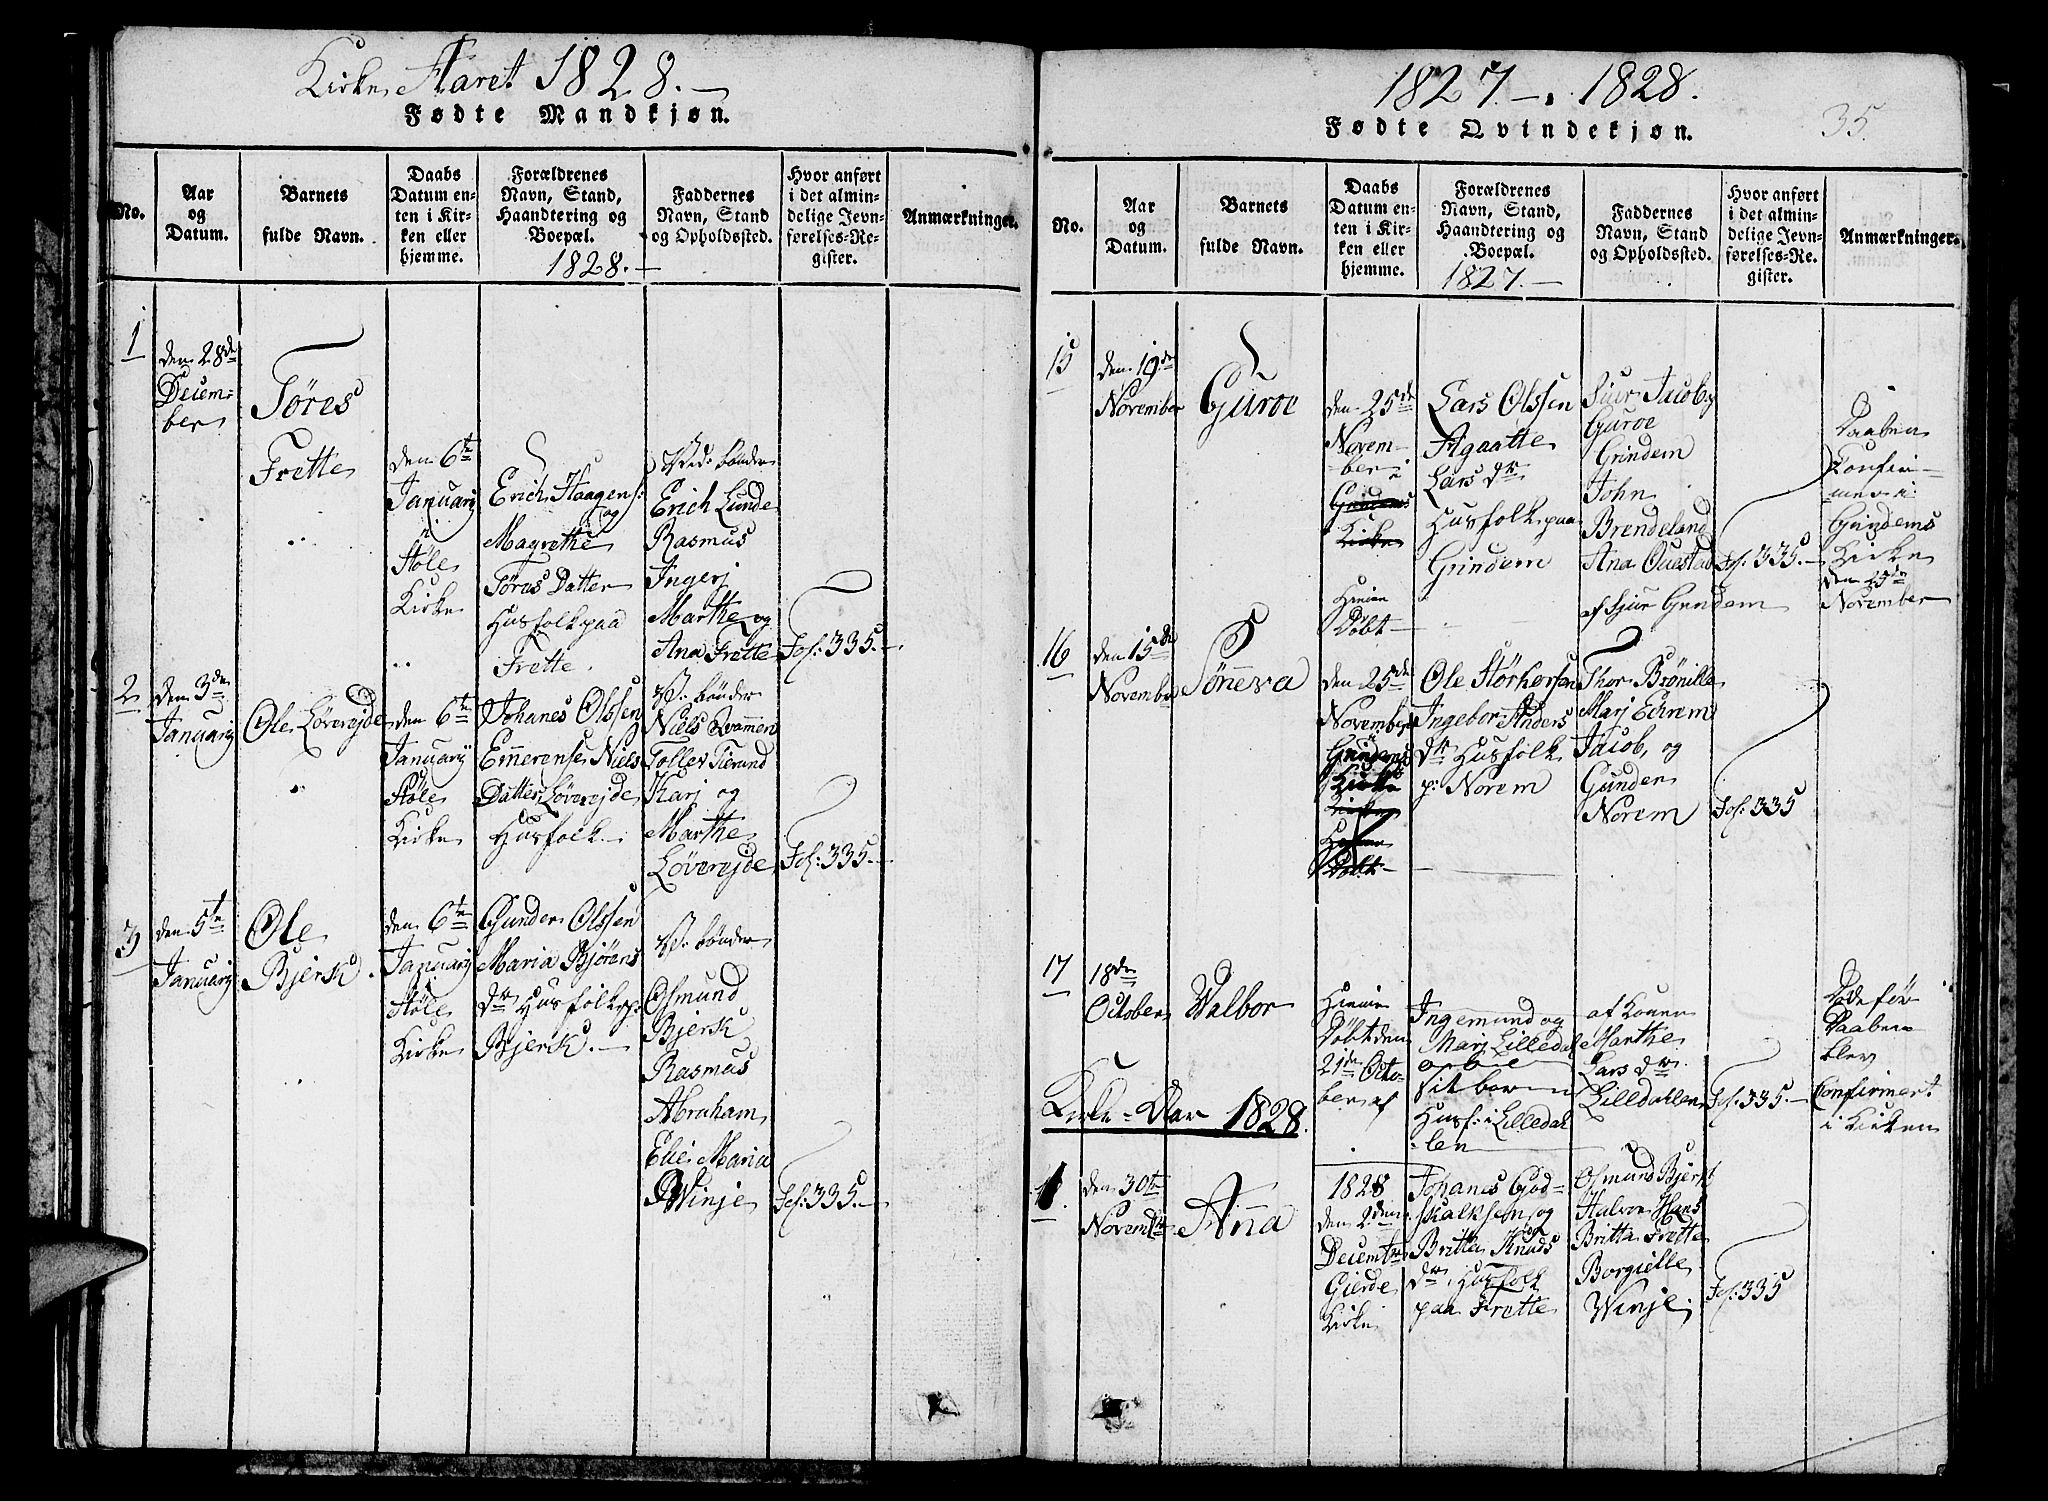 Kirke Aaret 1828.-
Fødte Mandkjøn.
No.
Aar
og
Datum.
Barnets
fulde Navn.
Daabs
Datum en-
ten i Kir-
ken eller
hjemme.
Forældrenes
Navn, Stand,
Haandtering og
Boepæl.
1828.-
Faddernes
Navn, Stand
og Opholdssted.
Hvor anført
i det almin-
delige Jevn-
førelses-Re-
gister.
Anmærkninger.
1
den 28de
Decem-
ber
Tøres
Frette
den 6te
Januarij
i
Høle
Kirke
Erich Haagens:
og
Magrethe
Tøres Datter
Husfolk paa
Frette.
Vid: bønder
Erich Lunde
Rasmus
Ingerj
Marthe og
Ana Frette
Fol: 335.-
2
den 3de
Januarij
Ole Løverejde
den 6te
Januarij
Høle
Kirke
Johanes Olssen
Emmerense Niels
Datter Løverejde
Husfolk
V. bønder
Niels Qvammen
Tollev Tierund
Karj og
Marthe
Løverejde
Fol: 335.-
3
den 5te
Januarij
Ole
Bjerk.
den 6te
Januarij
Høle
Kirke
Gunder Olssen
Maria Bjørens
dr Husfolk p:
Bjerk.-
V. bønder
Osmund
Bjerk
Rasmus
Abraham
Elie Maria
Winje
Fol: 335.-
1827.-. 1828.
Fødte Qvindekjøn.
35.
No.
Aar
og
Datum.
Barnets
fulde Navn.
Daabs
Datum en-
ten i Kir-
ken eller
hjemme.
Forældrenes
Navn, Stand,
Haandtering og
Boepæl.
1827.-
Faddernes
Navn, Stand
og Opholdssted.
Hvor anført
i det almin-
delige Jevn-
førelses-Re-
gister.
Anmærkninger.
15
den 19de
November
Guroe
den 25de
Novem-
ber i
Grindems
Kirke
Hieme
Døbt
Lars Olssen
Agaatte
Lars dr
Husfolk paa
Grindem
Siur Jacob
Guroe
Grindem
John
Brendeland
Ana Ouestad
af Sjur Grindem
Fol. 335.-
Daaben
Confir-
meret i
Grindems
Kirke
den 25de
November
16
den 15de
November
Sønneva
den 25de
November
Grindems
Kirke
Ole Størkersen
Ingebor Anders
dr Husfolk
p: Norem
Thor Brønille
Marj Echrem
Jacob, og
Gunder
Norem
Fol: 335
17
18de
October
Valbor
Hieme
Døbt den
21de Octo-
ber af
Ingemund og
Marj Lilledal
Husf: i Lilledah-
len
af Konen
Marthe
Lars dr
Lilledahlen
Fol: 335.-
Daaben
blev
Confirmert
i Kirken
Kirke-Aar 1828.
1.
den 30te
Novembr
Anna
1828
den 2den
Decembr
Gierde
Kirke
Johanes God-
skalksen og
Britta Knuds
dr. Husfolk
paa Frette
Osmund Bjerk
Halvor Hans
Britta Frette
Borgielle
Winje
Fol: 335